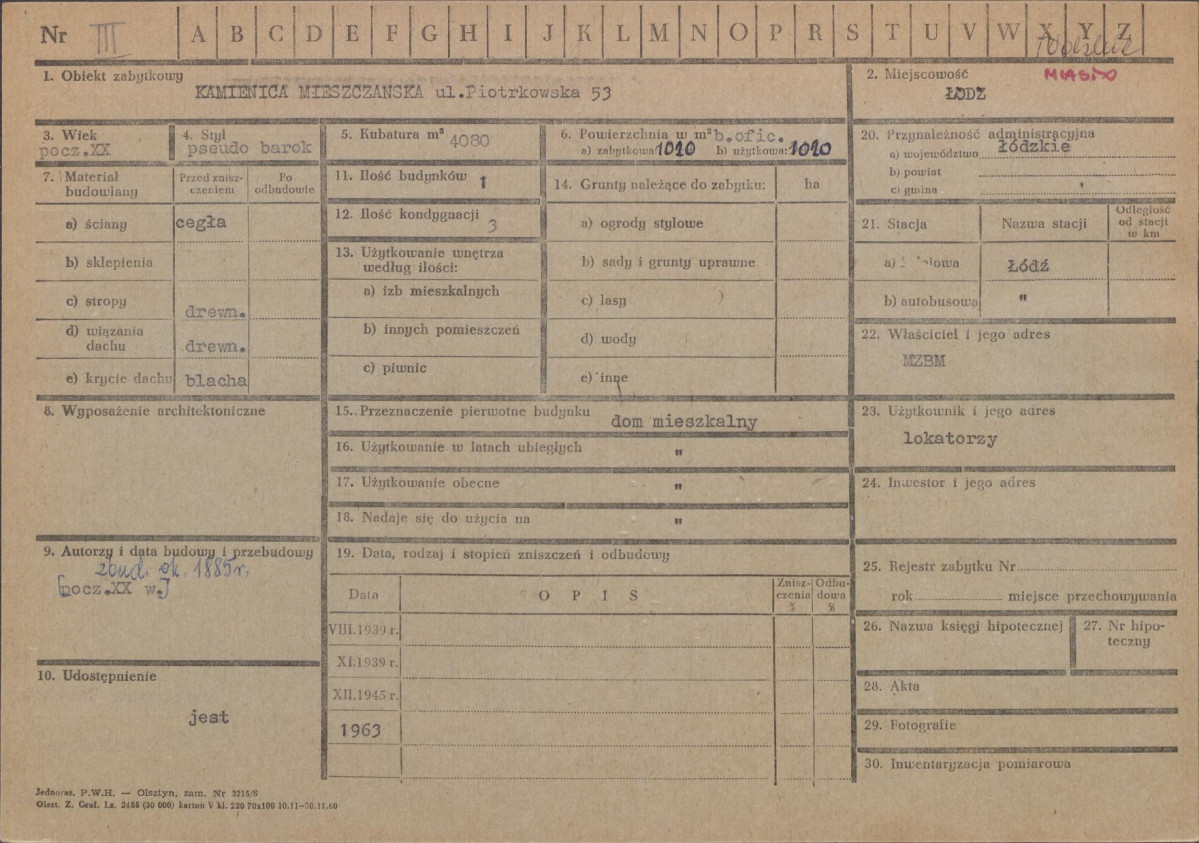 Nr III A B C D E F G H I J K L M N O P R S T U V W X Y Z
1. Obiekt zabytkowy
KAMIENICA MIESZCZAŃSKA ul.Piotrkowska 53
2. Miejscowość
MIASTO
ŁODZ
3. Wiek
pocz.XX
4. Styl
pseudo barok
5. Kubatura m³
4080
6. Powierzchnia w m² b.ofic.
a) zabytkowa: 1020 b) użytkowa: 1020
20. Przynależność administracyjna
a) województwo łódzkie
b) powiat
c) gmina "
7. Materiał budowlany
Przed zniszczeniem
Po odbudowie
a) ściany cegła
b) sklepienia
c) stropy drewn.
d) wiązania dachu drewn.
e) krycie dachu blacha
11. Ilość budynków 1
12. Ilość kondygnacji 3
13. Użytkowanie wnętrza według ilości:
a) izb mieszkalnych
b) innych pomieszczeń
c) piwnic
14. Grunty należące do zabytku: ha
a) ogrody stylowe
b) sady i grunty uprawne
c) lasy
d) wody
e) inne
21. Stacja
Nazwa stacji
Odległość od stacji w km
a) Łódź
b) autobusowa "
22. Właściciel i jego adres
MZBM
8. Wyposażenie architektoniczne
15. Przeznaczenie pierwotne budynku dom mieszkalny
16. Użytkowanie w latach ubiegłych "
17. Użytkowanie obecne "
18. Nadaje się do użycia na "
23. Użytkownik i jego adres
lokatorzy
24. Inwestor i jego adres
9. Autorzy i data budowy i przebudowy
zbud. ok. 1885 r.
[pocz.XX w.]
19. Data, rodzaj i stopień zniszczeń i odbudowy
Data
O P I S
Zniszczenia %
Odbudowa %
VIII.1939 r.
XI.1939 r.
XII.1945 r.
1963
25. Rejestr zabytku Nr
rok miejsce przechowywania
26. Nazwa księgi hipotecznej
27. Nr hipoteczny
10. Udostępnienie
jest
28. Akta
29. Fotografie
30. Inwentaryzacja pomiarowa
Jednoraz. P.W.H. — Olsztyn, zam. Nr 3215/S
Olszt. Z. Graf. Lz. 2485 (30 000) karton V kl. 220 70x100 10.11—30.11.60